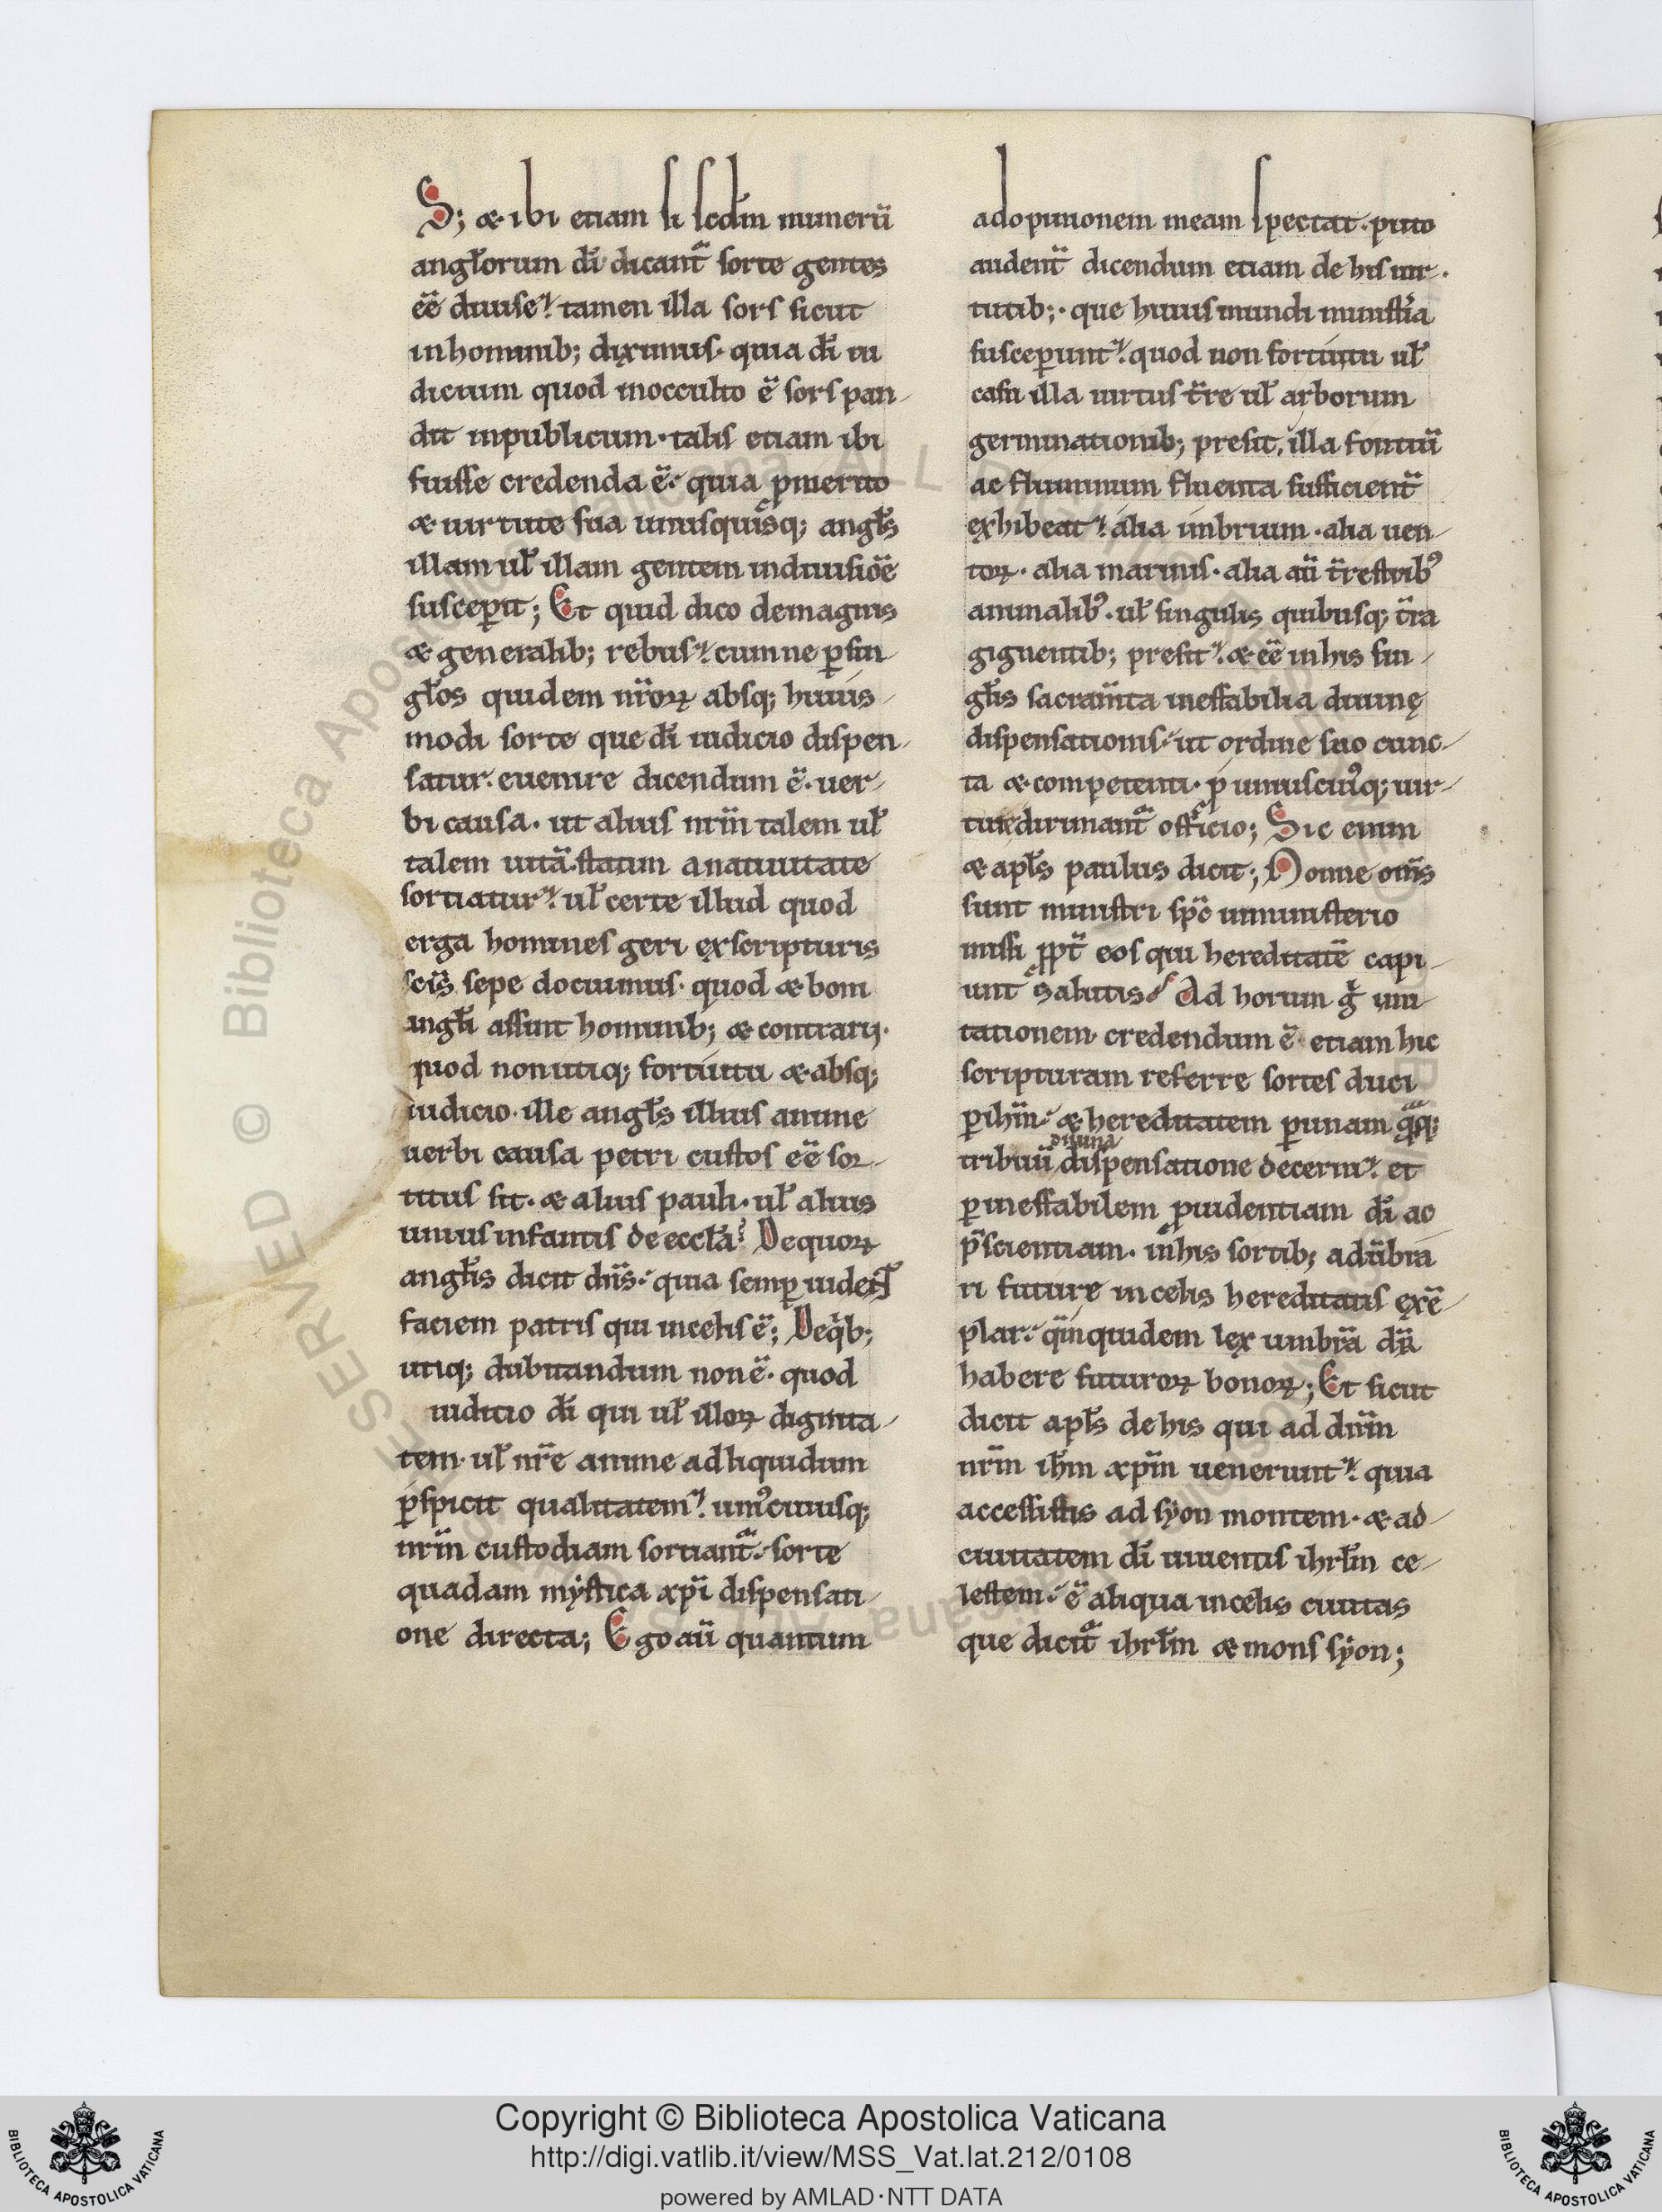 S; & ibi etiam si scdm̄ munerū
angl̄orum dī dicant᷑ sorte gentes
eē diuise. tamen illa sors sicut
inhominib; diximus. quia dī iu
dicium quod inocculto ē sors pan-
dit inpublicum. talis etiam ibi
fuisse credenda ē. quia pmerito
& uirtute sua unusquisq; angl̄s
illam ul̄ illam gentem indiuisiōē
suscepit; Et quid dico demagnis
& generalib; rebus. cumne psin-
gl̄os quidem nr̄oꝝ absq; huius-
modi sorte que dī iudicio dispen-
satur. euenire dicendum ē. uer-
bi causa. ut alius nr̄m talem ul̄
talem uitā. statum anatiuitate
sortiatur. ul̄ certe illud quod
erga homines geri exscripturis
scīs sepe docuimus. quod & boni
angl̄i assint hominib; & contrarij.
quod non utiq; fortuitu & absq;
iudicio. ille angl̄s illius anime
uerbi causa petri custos eē sor-
titus sit. & alius pauli. ul̄ alius
unius infantis de eccl̄a. Dequoꝝ
angl̄is dicit dn̄s. quia semp uident
faciem patris qui incelis ē; Deq̄b;
utiq; dubitandum non ē. quod
iudicio dī qui ul̄ illoꝝ dignita-
tem. ul̄ nr̄e anime adliquidum
pspicit qualitatem. uni᾿cuiusq;
nr̄m custodiam sortiant᷑. sorte
quadam mystica xpī dispensati-
one directa; Ego aū quantum
adopinionem meam spectat. puto
audent᷑ dicendum etiam de his uir-
tutib;. que huius mundi ministr̄ia
susceperunt. quod non fortuitu ul̄
casu illa uirtus tr̄re ul̄ arborum
germinationib; presit. illa fontiū
ac fluminum fluenta sufficient᷑
exhibeat. alia imbrium. alia uen-
toꝝ. alia marinis. alia aū tr̄restrib᾿
animalib᾿. ul̄ singulis quibusq; tr̄ra
gignentib; presit. & eē inhis sin-
gl̄is sacram̄ta ineffabilia diuinę
dispensationis. ut ordine suo cunc-
ta & competenti. p uniuscui᾿q; uir-
tutedirimant᷑ officio; Sic enim
& apl̄s paulus dicit; Nonne om̄s
sunt ministri spc̄ inministerio
missi ppt̄ eos qui hereditatē capi-
unt salutis. Ad horum g̊ imi-
tationem credendum ē etiam hic
scripturam referre sortes duci
pihm̄. & hereditatem punam q̄q;
diuina
tribuū dispensatione decerni. et
pineffabilem puidentiam dī ac
p̄scientiam. inhis sortib; adūbra
ri future incelis hereditatis exē-
plar. qm̄quidem lex umbrā dr̄
habere futuroꝝ bonoꝝ; Et sicut
dicit apl̄s de his qui ad dnm̄
nr̄m ihm̄ xpm̄ uenerunt. quia
accessistis ad syon montem. & ad-
ciuitatem dī uiuentis ihrl̄m ce-
lestem. ē aliqua incelis ciuitas
que dicit᷑ ihrl̄m & mons syon;
Copyright © Biblioteca Apostolica Vaticana
http://digi.vatlib.it/view/MSS_Vat.lat.212/0108
powered by AMLAD·NTT DATA
BIBLIOTECA APOSTOLICA VATICANA
BIBLIOTECA APOSTOLICA VATICANA